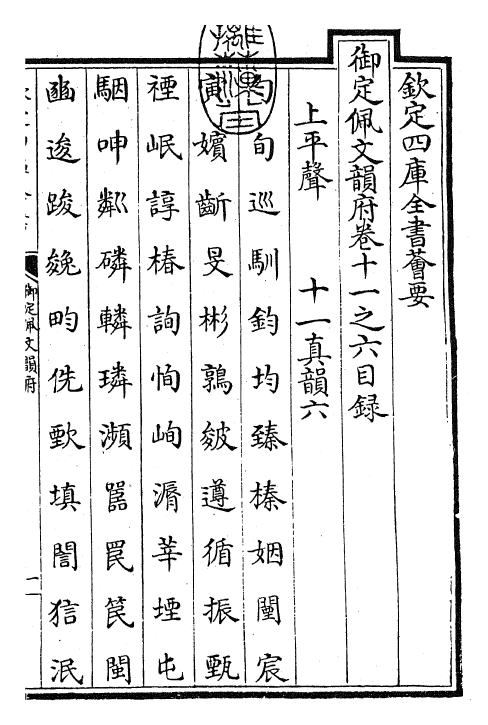 欽定四庫全書薈要
御定佩文韻府卷十一之六目錄
上平聲 十一真韻六
旬 巡 馴 鈞 均 臻 榛 姻 闉 宸
嬪 齗 旻 彬 鶉 皴 遵 循 振 甄
禋 岷 諄 椿 詢 恂 峋 漘 莘 堙 屯
駰 呻 粼 磷 轔 璘 瀕 嚚 罠 笢 閩
豳 逡 踆 㕙 畇 侁 歅 填 誾 狺 泯
御定佩文韻府
一